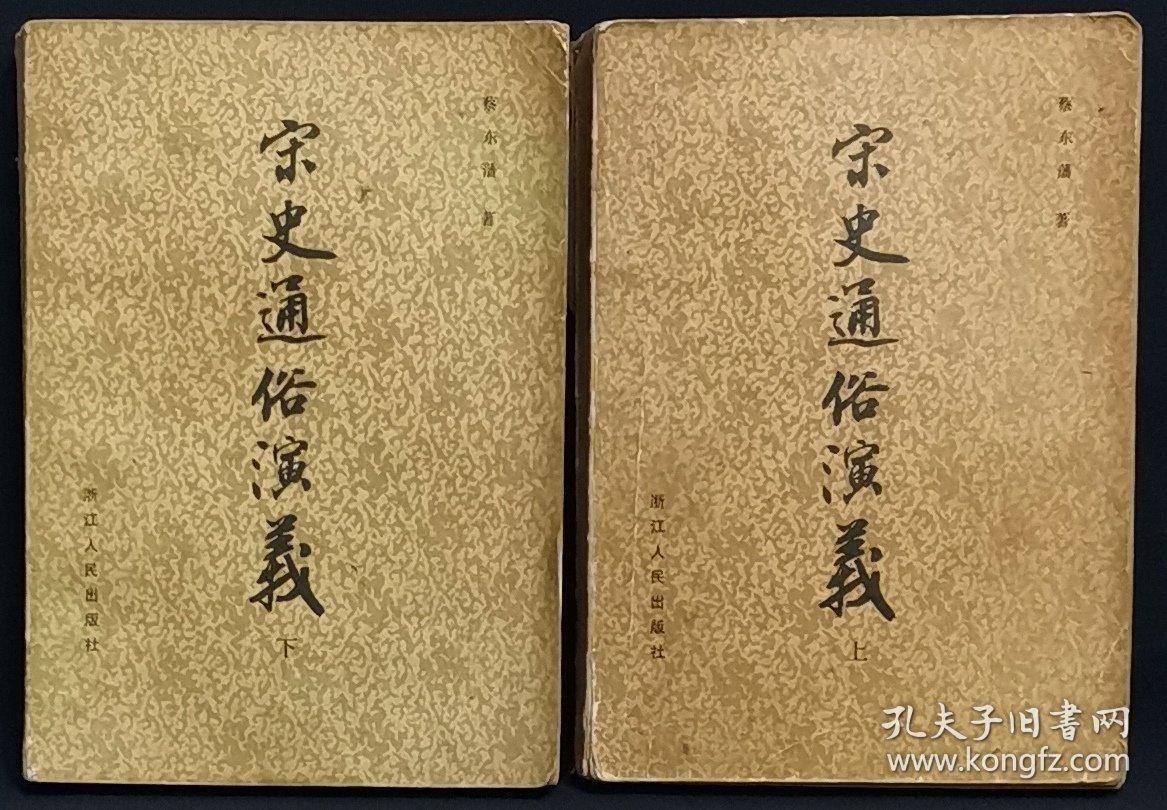 蔡东藩 著
宋史通俗演義
上
浙江人民出版社
蔡东藩 著
宋史通俗演義
下
浙江人民出版社
孔夫子旧書网
www.kongfz.com